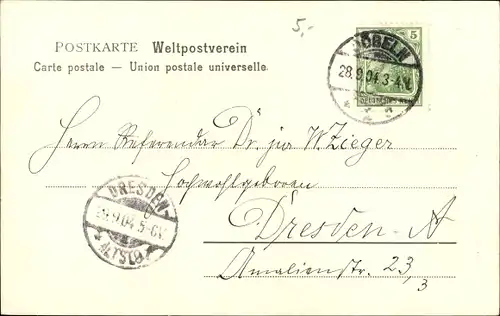 5,-
POSTKARTE Weltpostverein
Carte postale — Union postale universelle.
5
DEUTSCHES REICH
DÖBELN
28.9.04.3-4.N.
Herrn Referendar Dr. jur W. Zieger
Hochwohlgeboren
Dresden-A
Amalienstr. 23,3
DRESDEN-
ALTST.
28.9.04.5-6N.